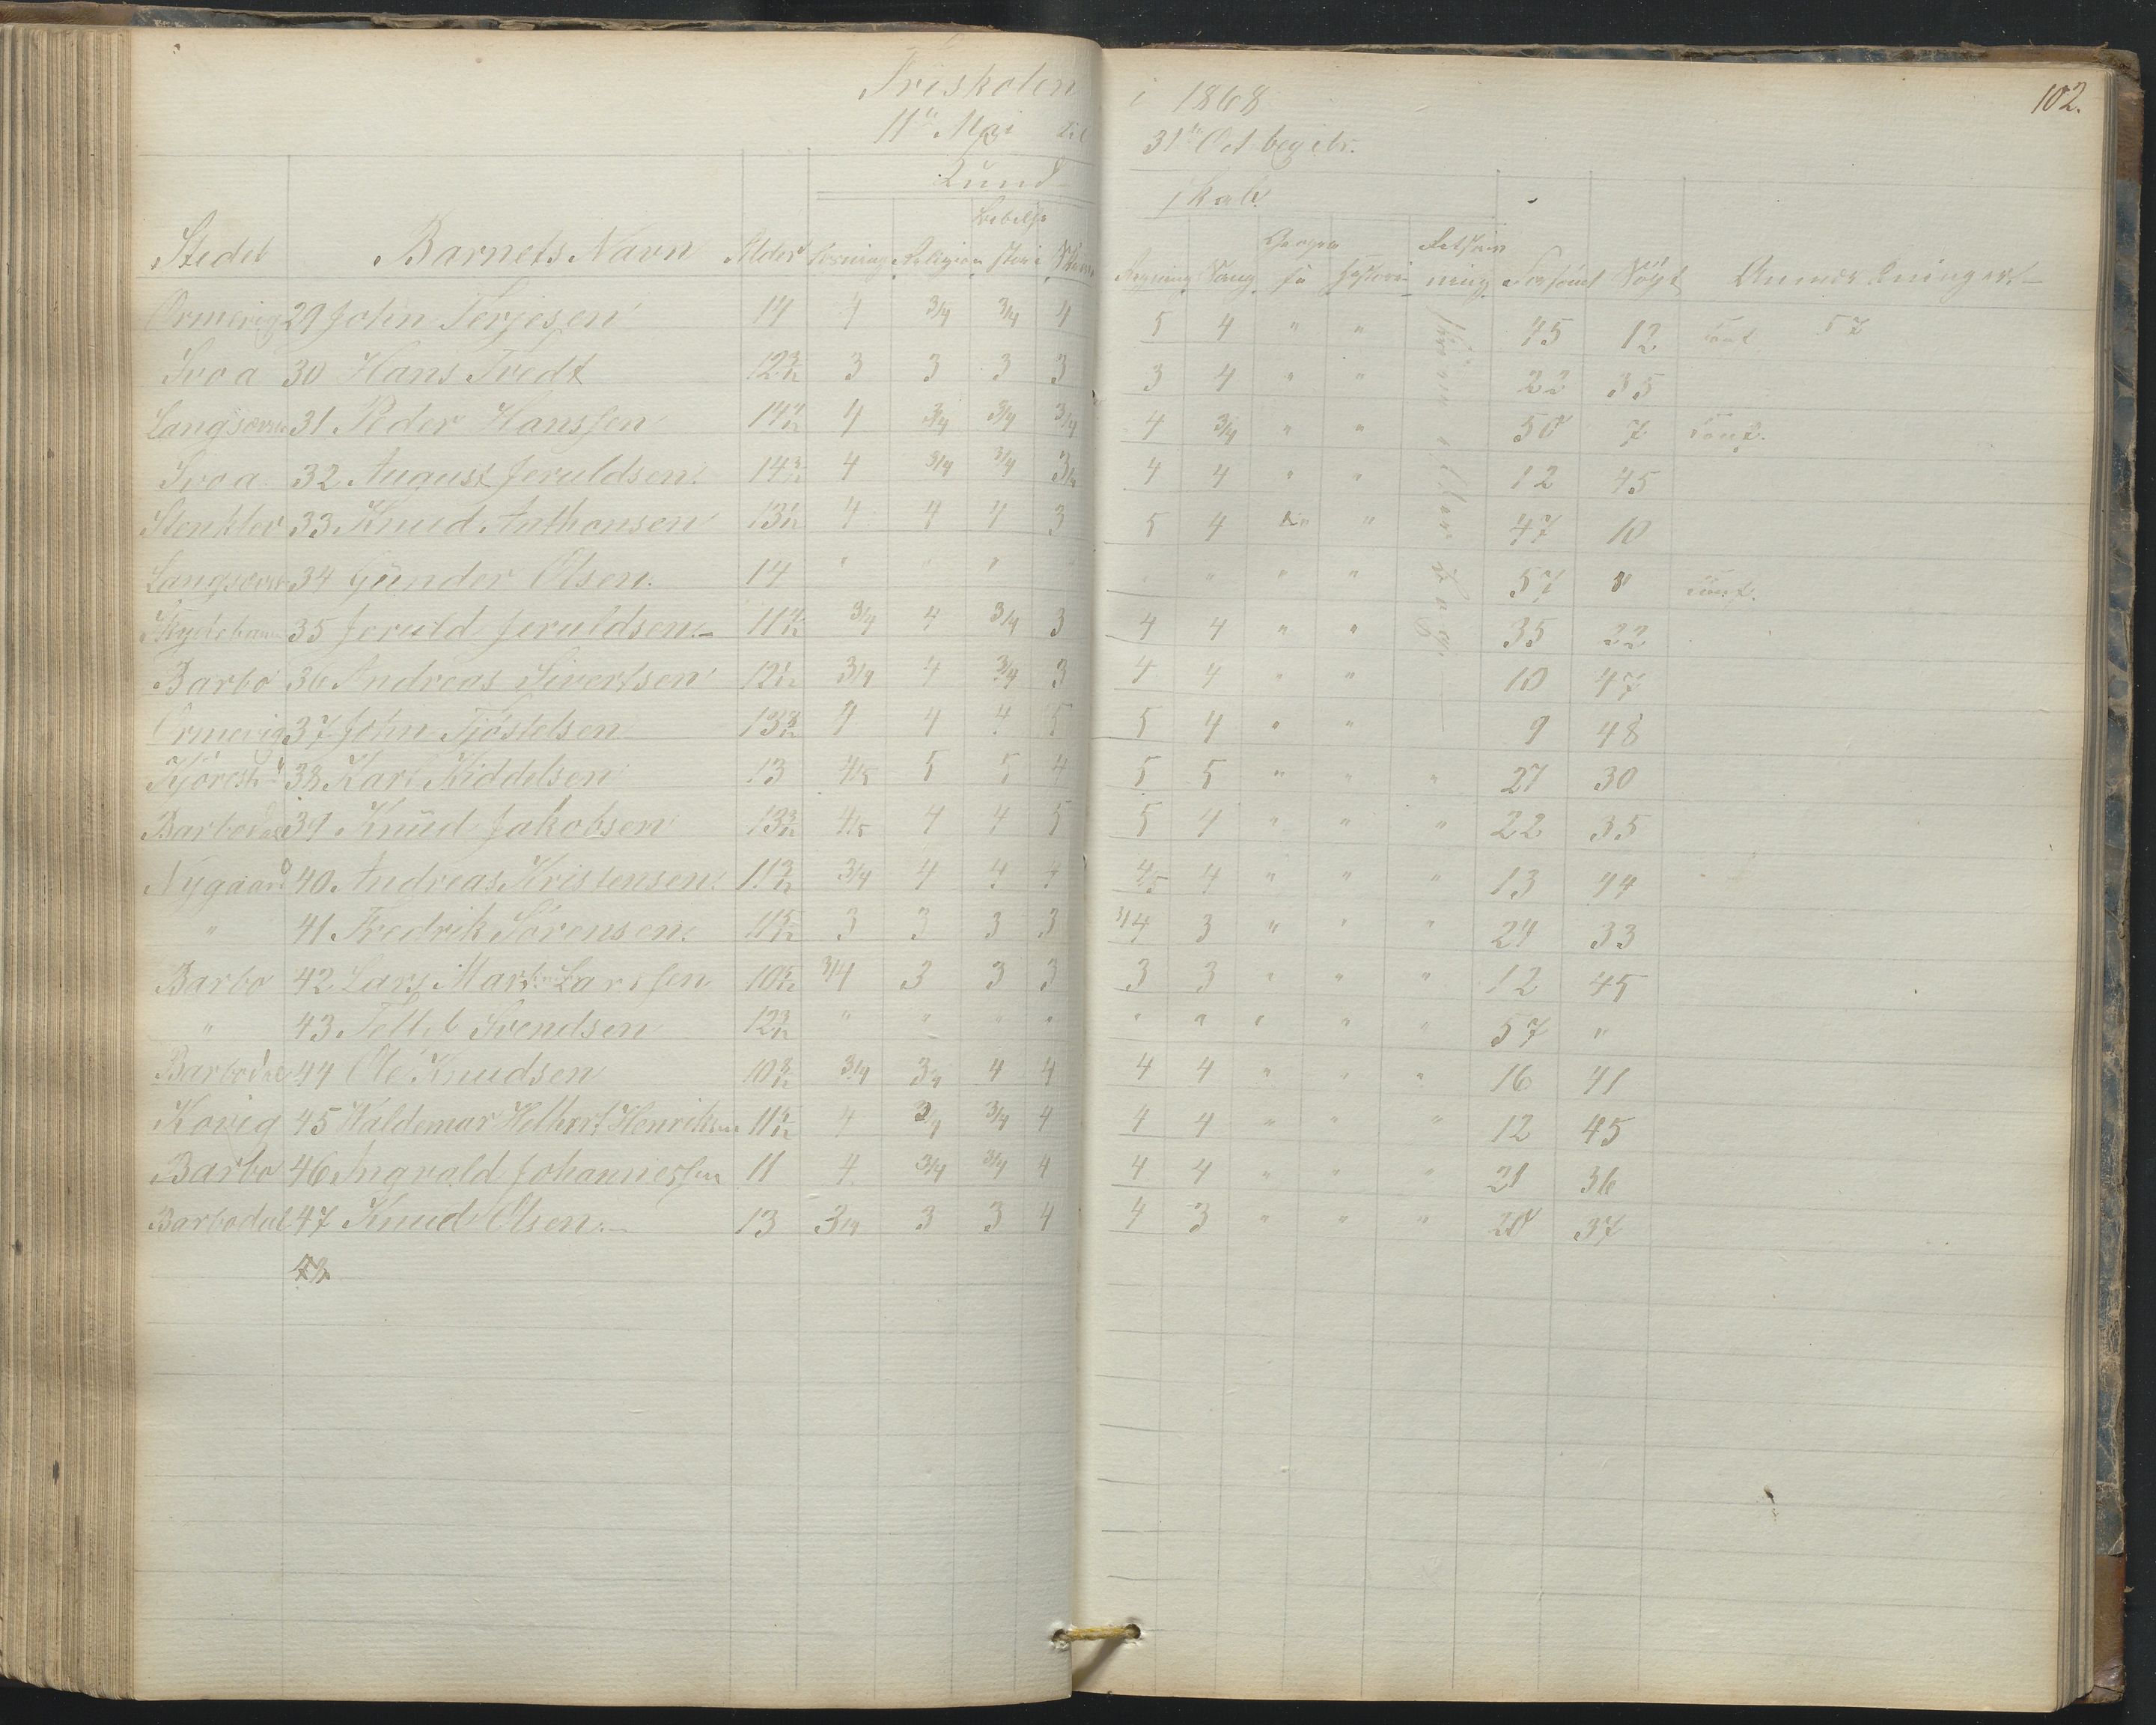 Friskolen i 1868 102.
11te Mai til 31te Oct begge ib.
Kund- skab
Stedet Barnets Navn Alder Læsning Religion Bibelhi- storie Skrivn Regning Sang Geogra fie Historie Retskriv- ning Forsömt Sögt Anmærkninger.-
Ormevig 29 John Terjesen 14 4 3/4 3/4 4 5 4 " " 45 12 57
Svoa 30 Hans Tvedt 12 3/12 3 3 3 3 3 4 " " 22 35
Langsæven 31 Peder Hanssen 4 3/4 3/4 3/4 4 3/4 " " 50 7 konf.
Svoa 32 August Jeruldsen. 4 3/4 3/4 4 4 " " 12 45
33 Knud Anthonsen 4 4 4 3 5 4 " " 47 10
34 Gunder Olsen. 14 " " " " " " " " 57 0 konf.
35 Jeruld Jeruldsen.- 3/4 4 3/4 3 4 4 " " 35 22
Barbo 36 Andreas Sivertsen 3/4 4 3/4 3 4 4 " " 10 47
Ormevig 37 John Tjöstelsen 4 4 4 5 5 4 " " 9 48
38 Karl Kiddelsen 13 4/5 5 5 4 5 5 " " " 27 30
Barbodal 39 Knud Jakobsen 4/5 4 4 5 5 4 " " " 22 35
Nygaard 40. Andreas Kristensen. 11 3/12 3/4 4 4 4 4/5 4 " " " 13 44
" 41. Fredrik Sörensen. 3 3 3 3 3/4 3 " " " 24 33
Barbo 42 Lars Larssen 3/4 3 3 3 3 3 " " " 12 45
" 43 Tellef Svendsen 12 3/12 " " " " " " " " " 57 "
Barbodal 44 Ole Knudsen 3/4 3/4 4 4 4 4 " " " 16 41
Kovig 45 Waldemar Henriksen 4 3/4 3/4 4 4 4 " " " 12 45
Barbo 46 Ingvald Johannessen 11 4 3/4 3/4 4 4 4 " " " 21 36
Barbodal 47 Knud Olsen.- 13 3/4 3 3 4 4 3 " " " 20 37
48